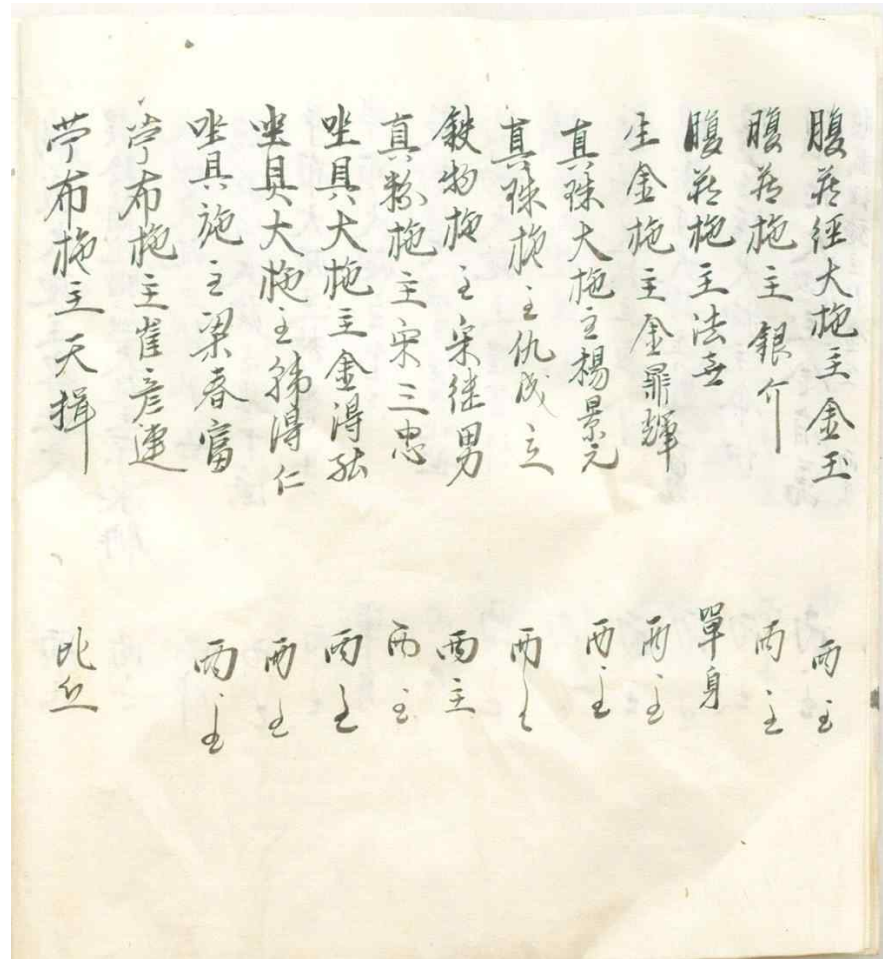 腹藏經大施主金玉 兩主
腹藏施主銀介 兩主
腹藏施主法喜 單身
生金施主金羅輝 兩主
真珠大施主楊景元 兩主
真珠施主仇成立 兩主
鉄物施主宋继男 兩主
真粉施主宋三忠 兩主
坐具大施主金得弘 兩主
坐具大施主韩得仁 兩主
坐具施主梁春富 兩主
苧布施主崔彦連
苧布施主天揖 比丘